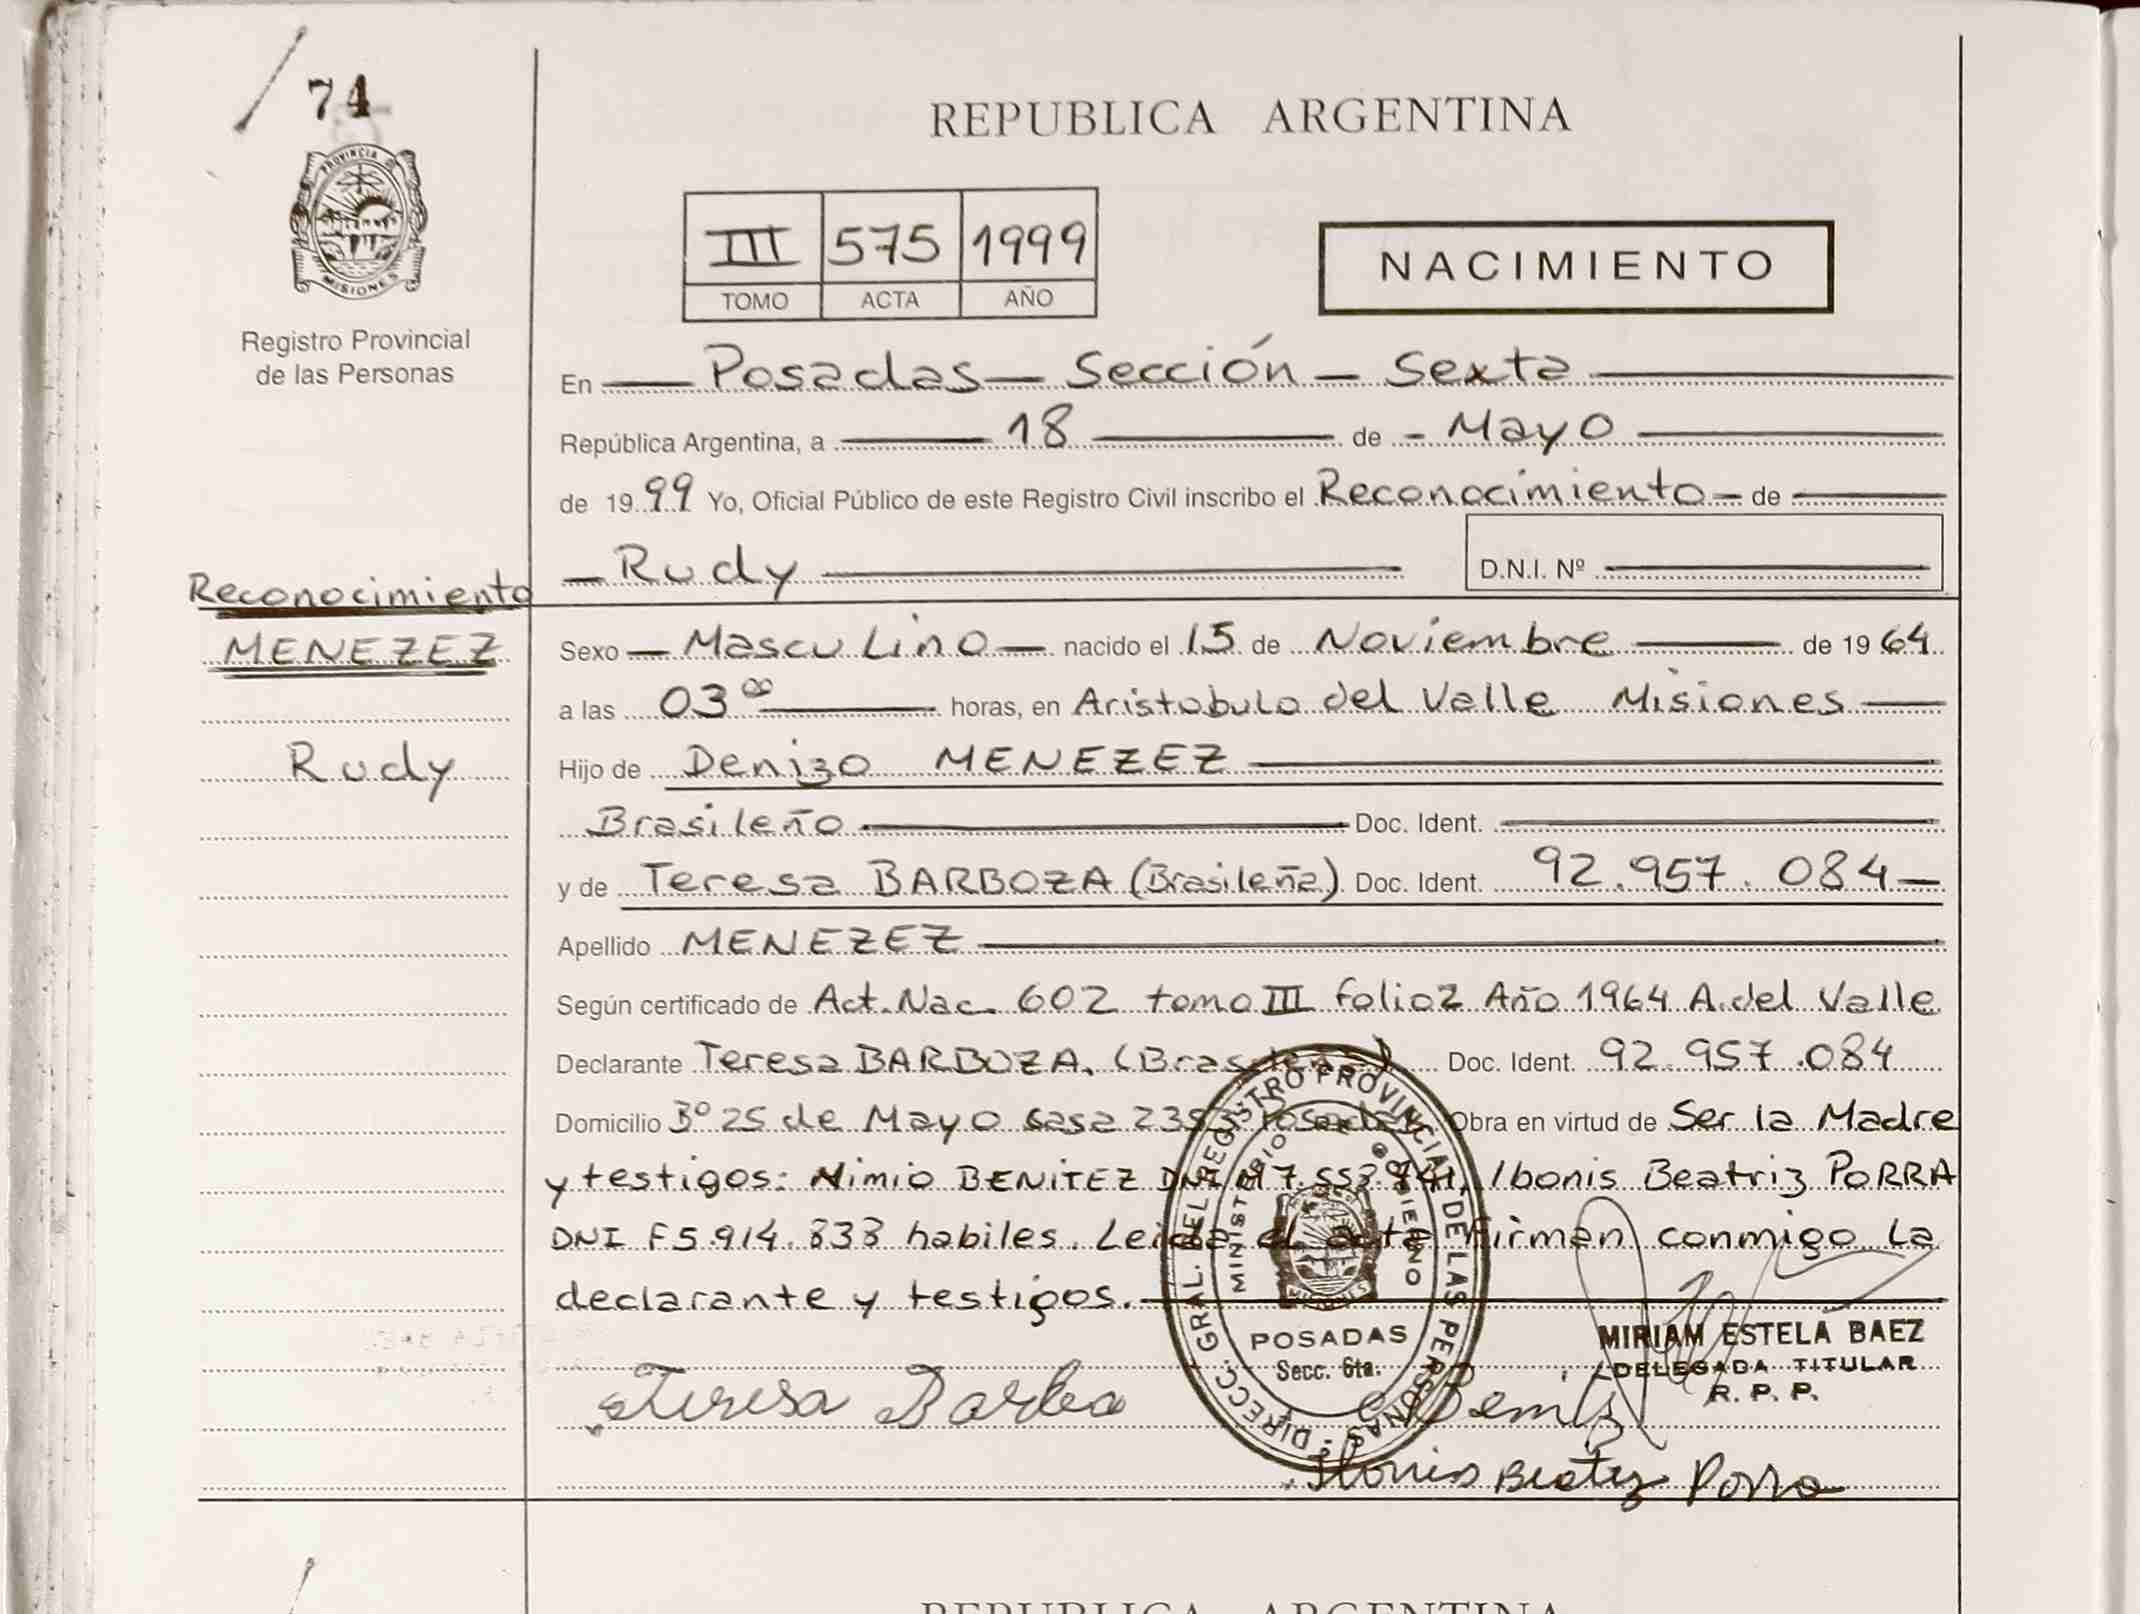 74
PROVINCIA DE
MISIONES
Registro Provincial
de las Personas
REPUBLICA ARGENTINA
III 575 1999
TOMO ACTA AÑO
NACIMIENTO
En Posadas - Sección - Sexta
República Argentina, a 18 de - Mayo
de 1999 Yo, Oficial Público de este Registro Civil inscribo el Reconocimiento - de
Rudy D.N.I. Nº
Reconocimiento
MENEZEZ
Rudy
Sexo - Masculino - nacido el 15 de Noviembre de 1964
a las 03 00 horas, en Aristobulo del Valle Misiones
Hijo de Denizo MENEZEZ
Brasileño Doc. Ident.
y de Teresa BARBOZA (Brasileña) Doc. Ident. 92.957.084
Apellido MENEZEZ
Según certificado de Act. Nac. 602 tomo III folio 2 Año 1964 A. del Valle
Declarante Teresa BARBOZA, (Brasileña) Doc. Ident. 92.957.084
Domicilio Bº 25 de Mayo casa 2353 Posadas Obra en virtud de Ser la Madre
y testigos: Nimio BENITEZ DNI M7.553.741, Ibonis Beatriz PORRA
DNI F5.914.833 habiles. Leida el acta firman conmigo la
declarante y testigos.
DIRECC. GRAL. DEL REGISTRO PROVINCIAL DE LAS PERSONAS
MINISTERIO DE GOBIERNO
POSADAS
Secc. 6ta.
MIRIAM ESTELA BAEZ
DELEGADA TITULAR
R. P. P.
Teresa Barboa
Ibonis Beatriz Porra
REPUBLICA ARGENTINA